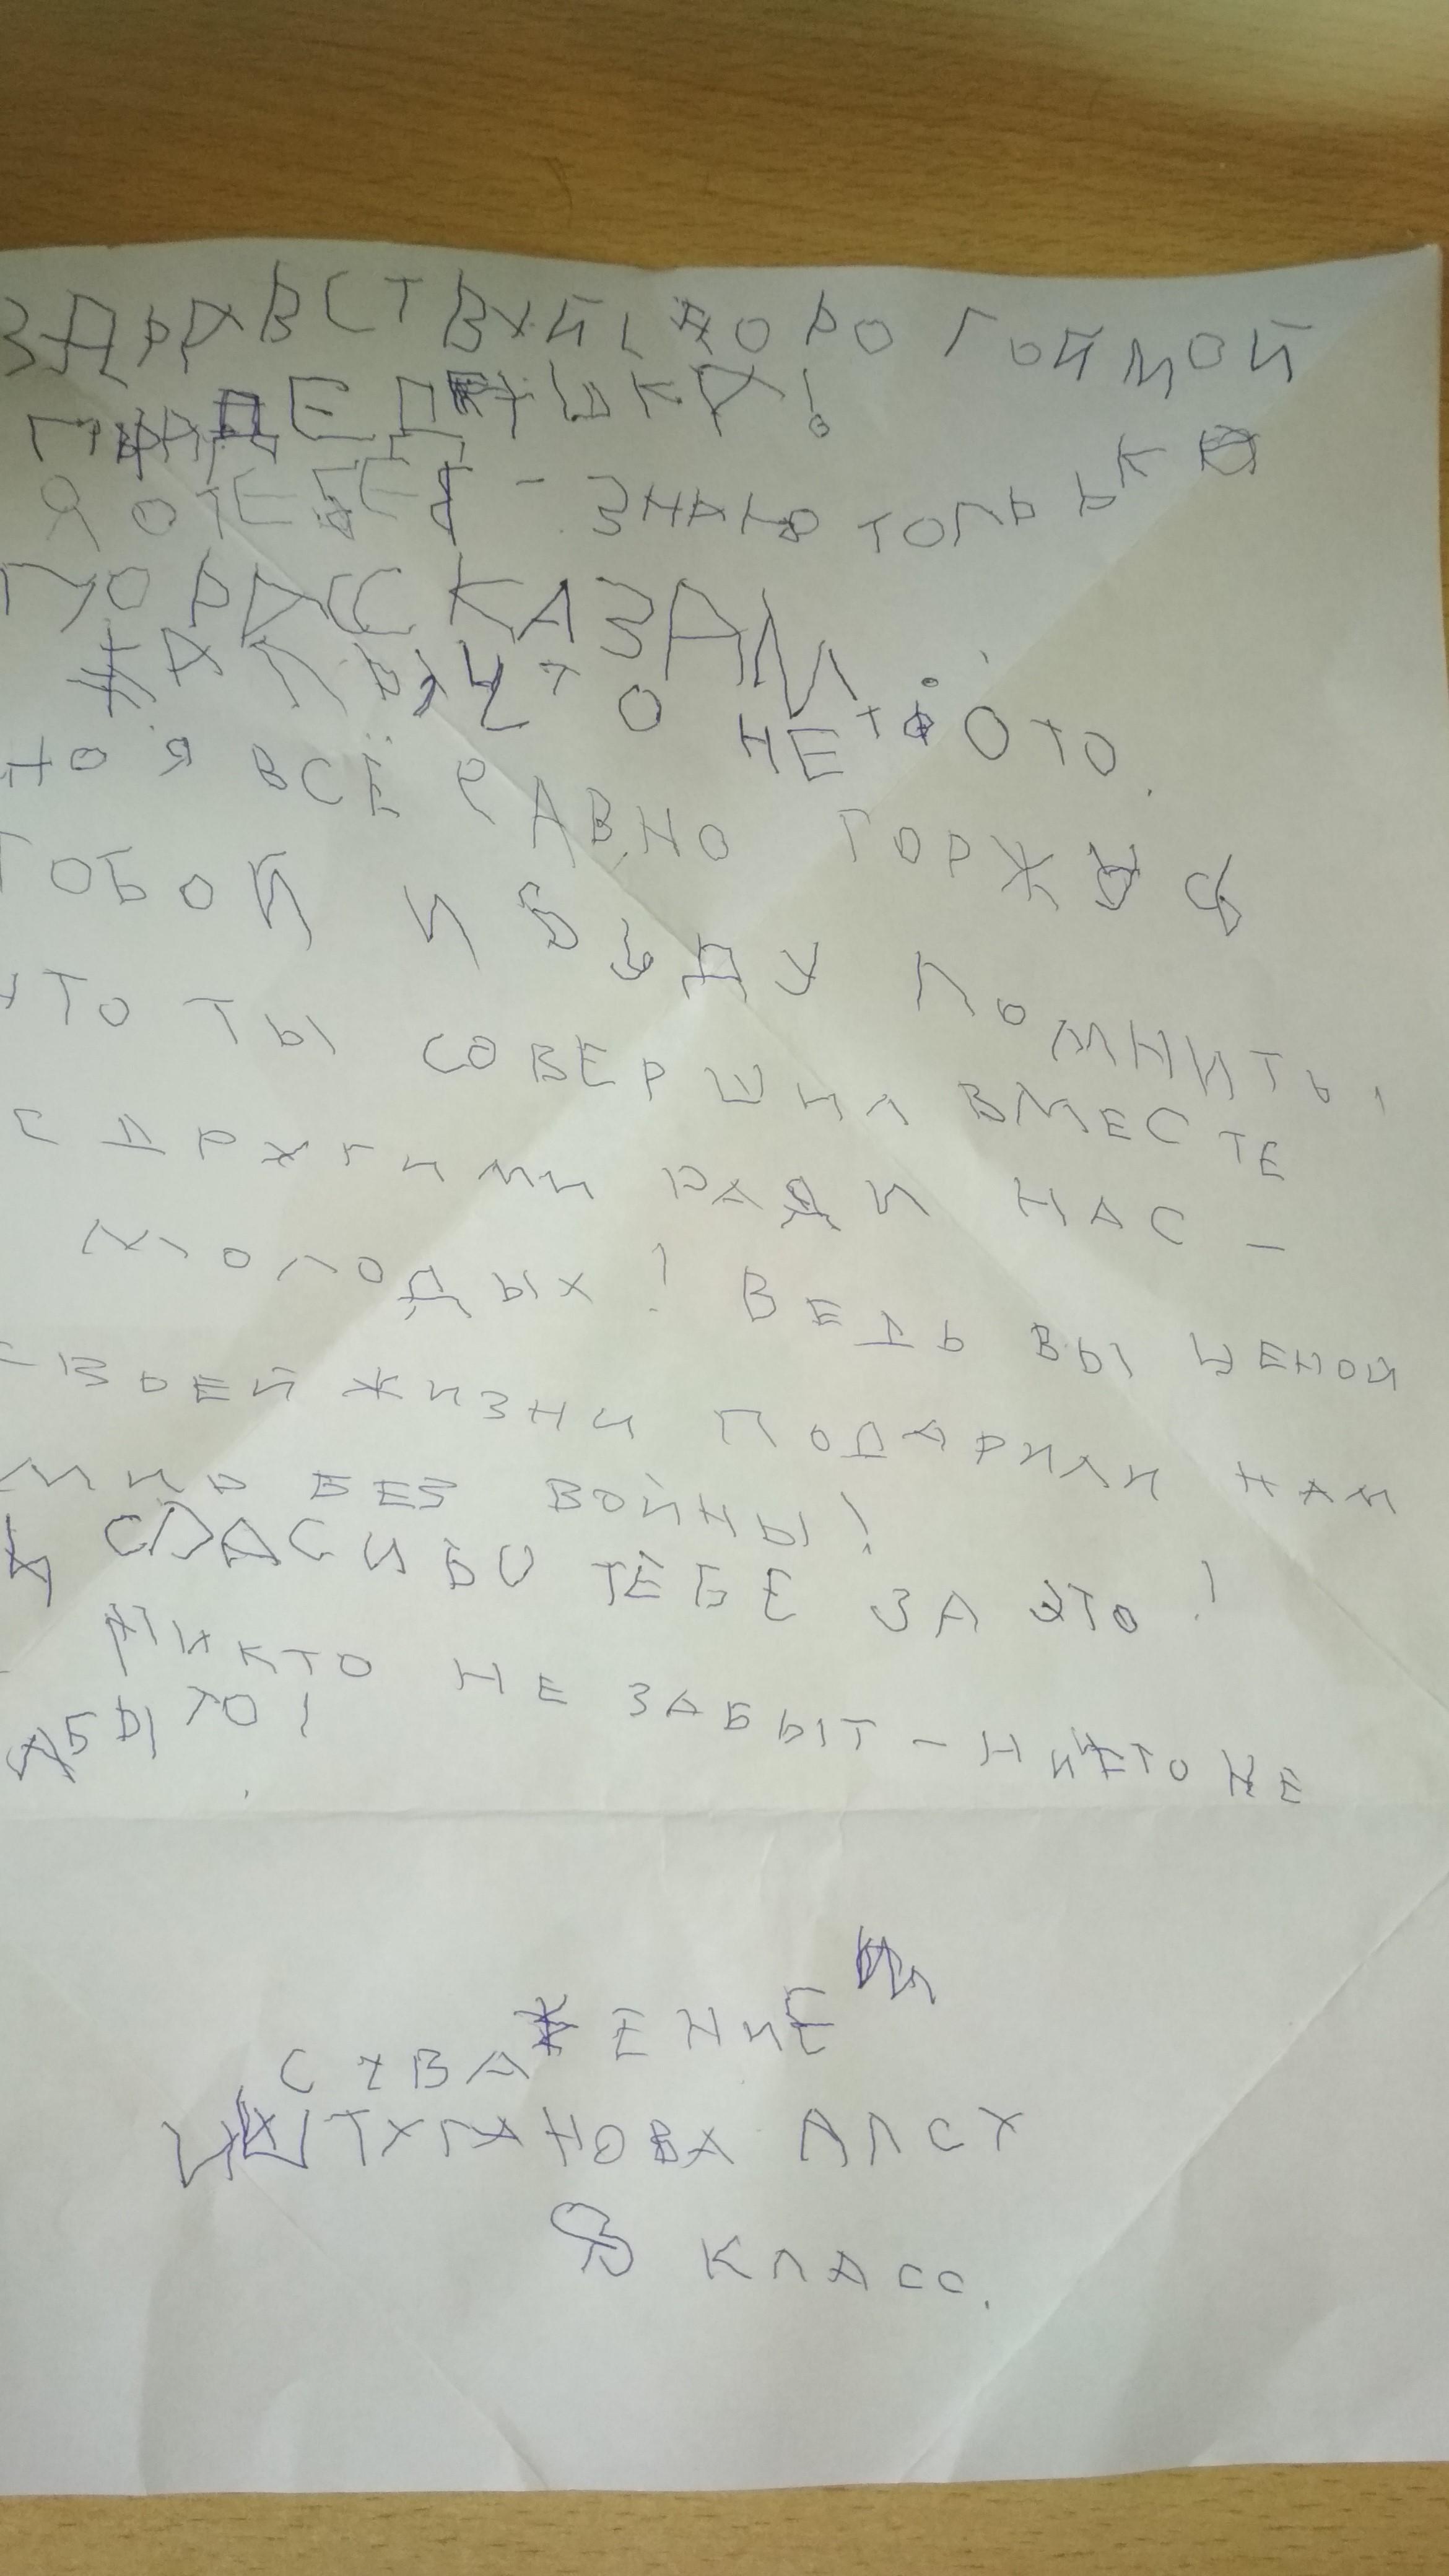 ЗДРАВСТВУЙ, ДОРОГОЙ МОЙ
ПРАДЕДУШКА!
Я О ТЕБЕ - ЗНАЮ ТОЛЬЬКО
ПО РАССКАЗАМ.
ЖАЛЬ, ЧТО НЕТ ФОТО.
НО Я ВСЁ РАВНО ГОРЖУСЬ
ТОБОЙ И БУДУ ПОМНИТЬ,
ЧТО ТЫ СОВЕРШИЛ ВМЕСТЕ
С ДРУГИМИ РАДИ НАС -
МОЛОДЫХ! ВЕДЬ ВЫ ЦЕНОЙ
СВОЕЙ ЖИЗНИ ПОДАРИЛИ НАМ
МИР БЕЗ ВОЙНЫ!
И СПАСИБО ТЕБЕ ЗА ЭТО!
НИКТО НЕ ЗАБЫТ - НИЧТО НЕ
АБЫТО!
С УВАЖЕНИЕМ
ИШТУГАНОВА АЛСУ
8 КЛАСС.